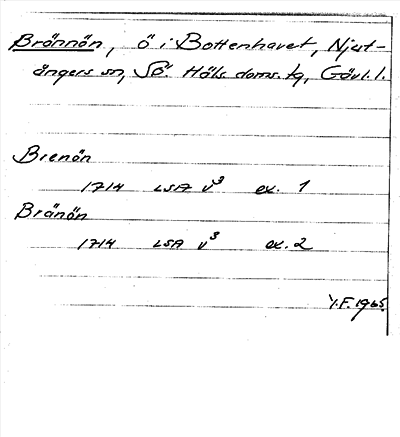 Brännön, ö i Bottenhavet, Njut-
ångers sn, Sö. Häls. doms. tg, Gävl. l.
Brenön
1714 LSA v³ ex. 1
Bränön
1714 LSA v³ ex. 2
Y.F. 1965.